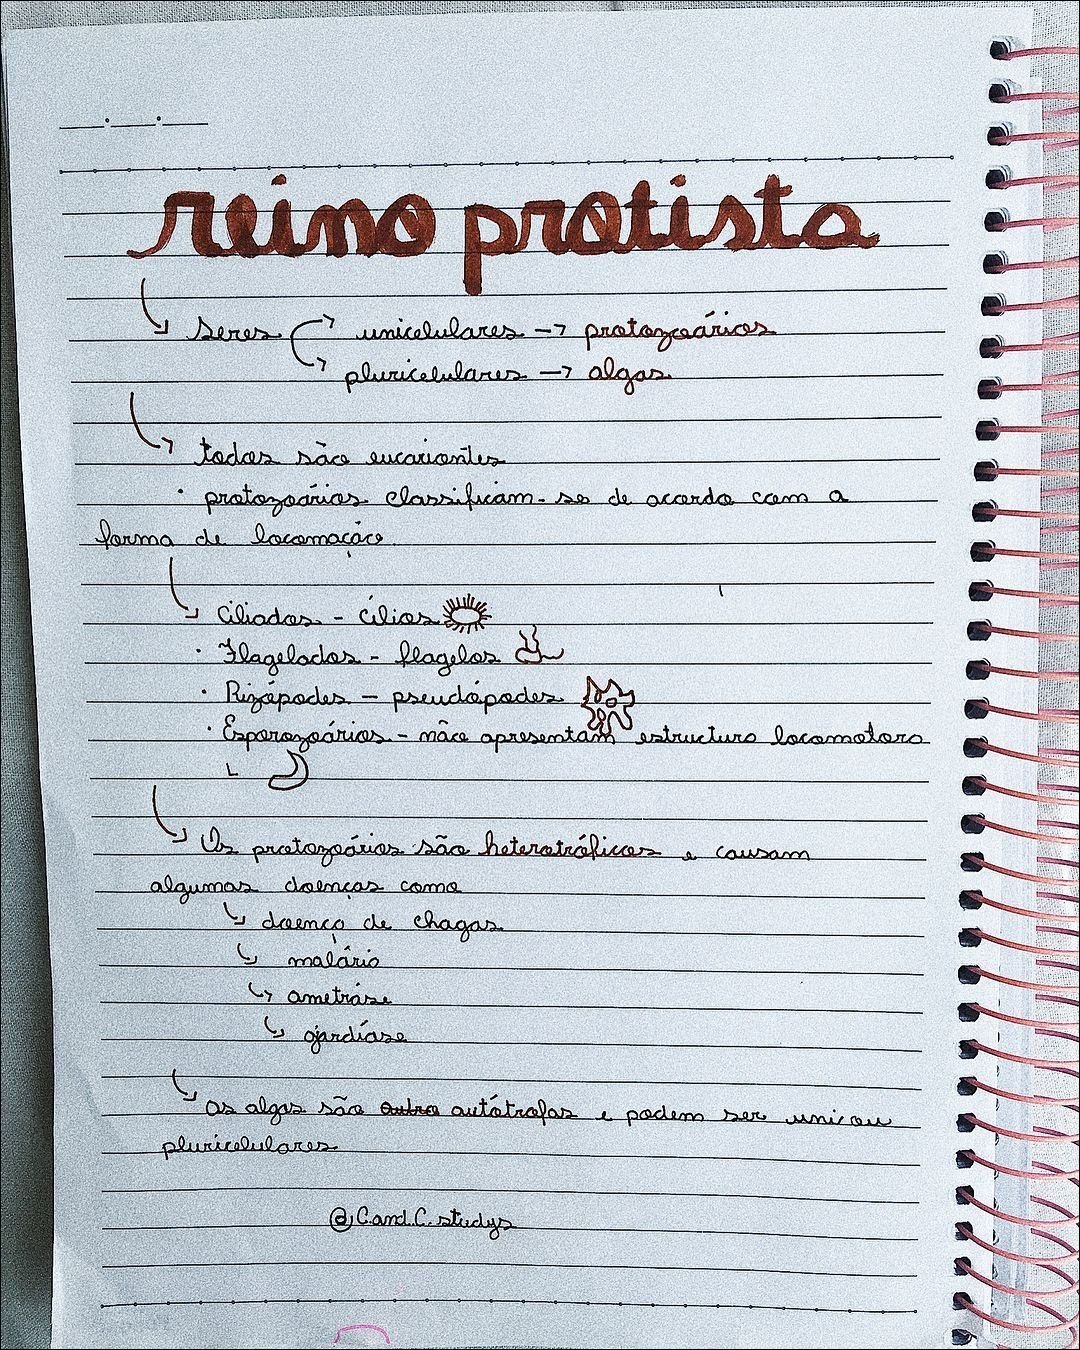 reino protista
seres → unicelulares → protozoários
→ pluricelulares → algas
todos são eucariontes
• protozoários classificam-se de acordo com a
forma de locomoção
Ciliados - cílios
• Flagelados - flagelos
• Rizópodes - pseudópodes
• Esporozoários - não apresentam estrutura locomotora
Os protozoários são heterotróficos e causam
algumas doenças como
doença de chagas
malária
ametráse
giardíase
as algas são autótrofas e podem ser uni ou
pluricelulares
@C.and.C.studys